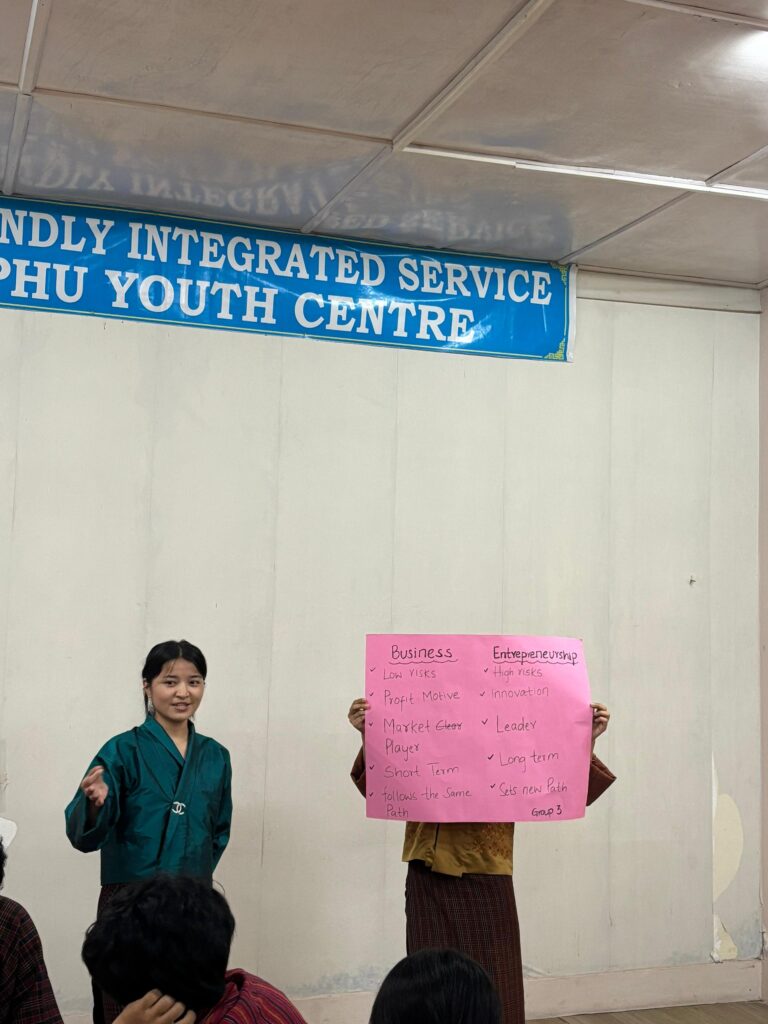 NDLY INTEGRATED SERVICE
PHU YOUTH CENTRE
Business
✓ Low risks
✓ Profit Motive
✓ Market Clear
Player
✓ Short Term
✓ follows the same
Path
Entrepreneurship
✓ High risks
✓ Innovation
✓ Leader
✓ Long term
✓ Sets new Path
Group 3